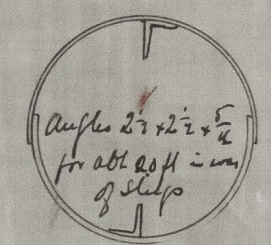 Angles 2½ × 2½ × 5/16
for abt 20 ft in way
of slings